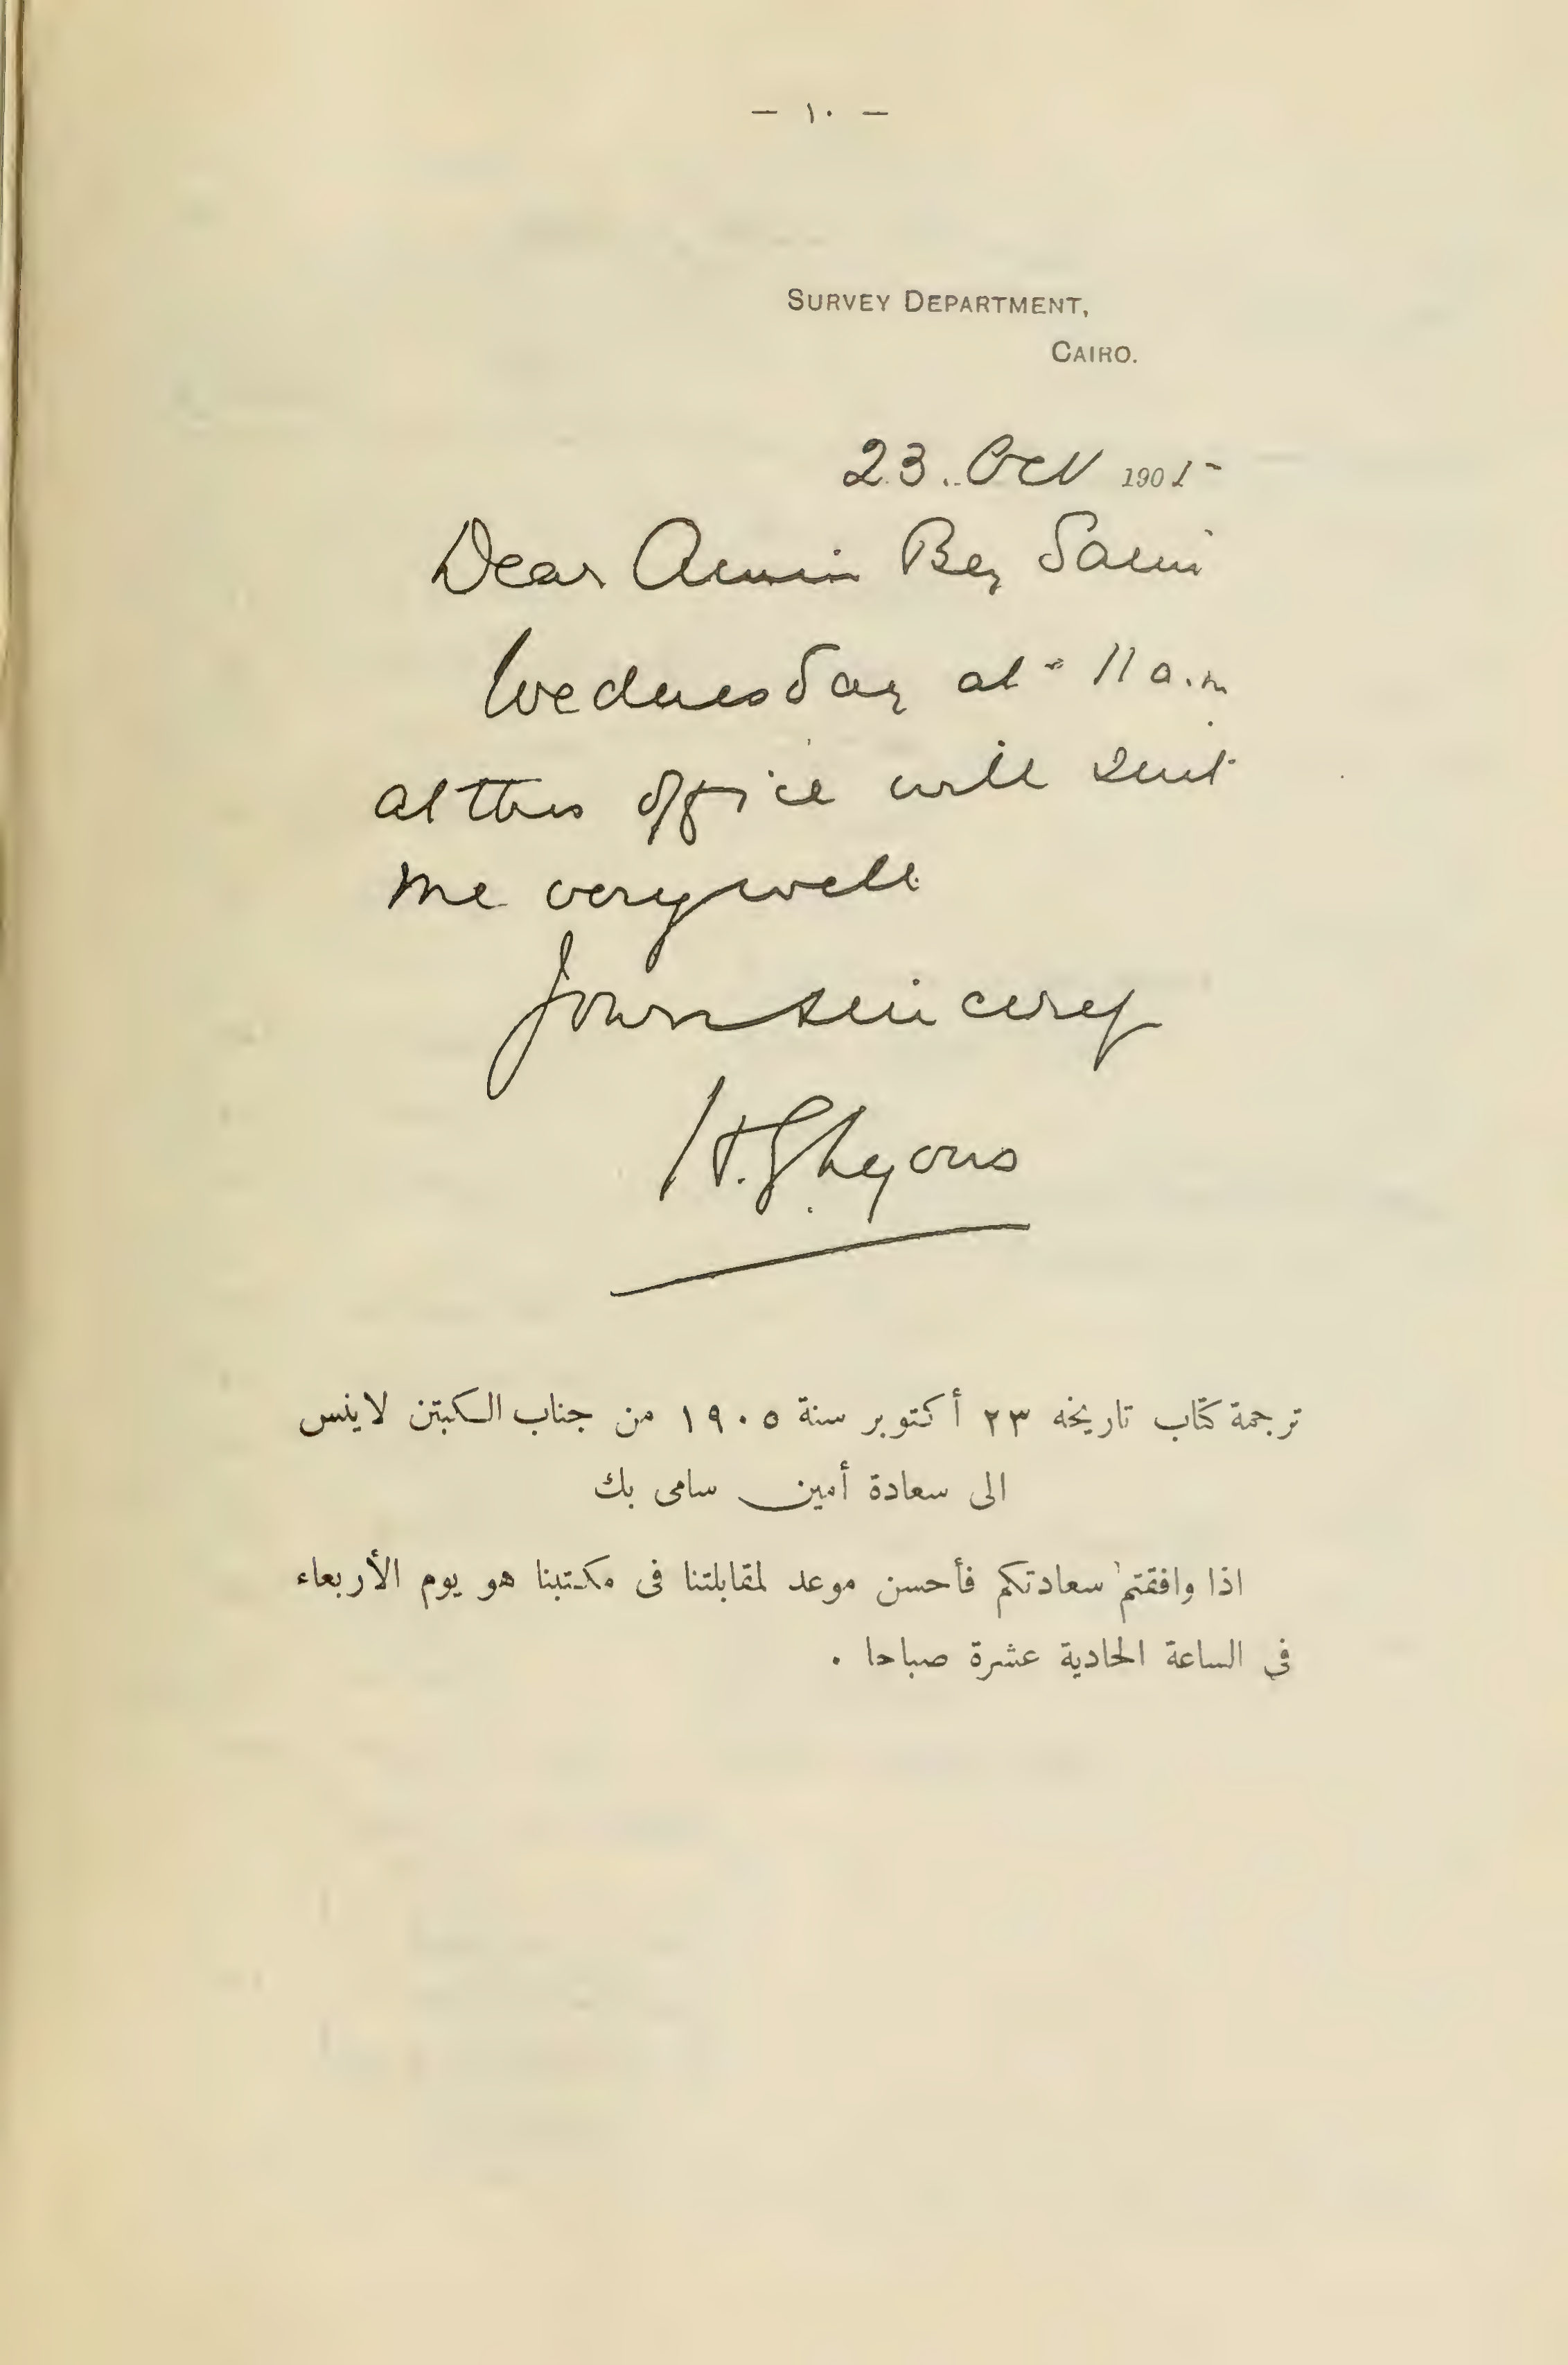 — ١٠ —
SURVEY DEPARTMENT,
CAIRO.
23. Oct 1905
Dear Amin Bey Sami
Wednesday at 11 a.m
at this office will suit
me very well
Yours sincerely
H.G. Lyons
ترجمة كتاب تاريخه ٢٣ أكتوبر سنة ١٩٠٥ من جناب الكبتن لاينس
الى سعادة أمين سامى بك
اذا وافقتم سعادتكم فأحسن موعد لمقابلتنا فى مكتبنا هو يوم الأربعاء
فى الساعة الحادية عشرة صباحا .